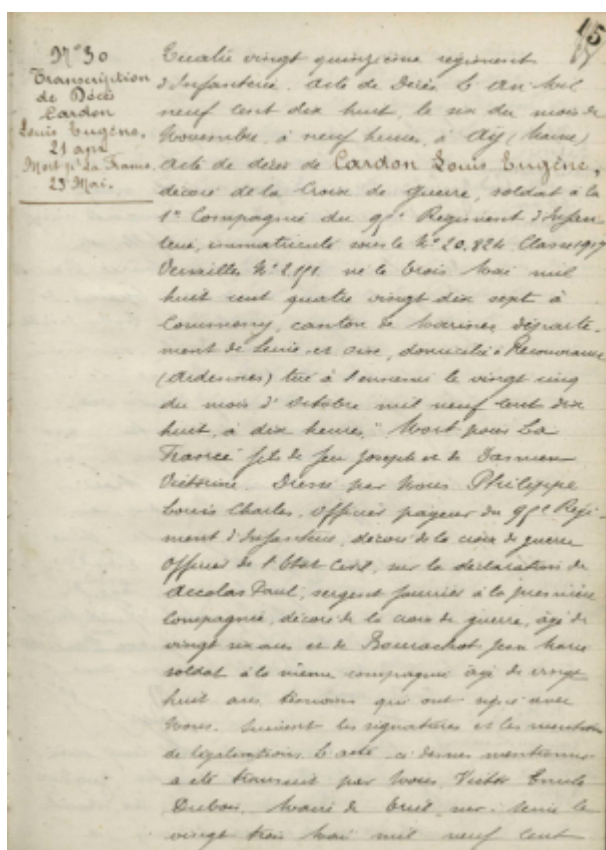 15
N° 30
Transcription
de Décès
Cardon
Louis Eugène,
21 ans
Mort pr La France.
23 Mai.
Quatre vingt quinzième régiment
d'Infanterie. Acte de Décès L'An Mil
neuf cent dix huit, le six du mois de
Novembre, à neuf heures, à Ay (Marne)
Acte de décès de Cardon Louis Eugène,
décoré de la Croix de guerre, soldat à la
1e Compagnie du 95e Régiment d'Infan-
terie, immatriculé sous le N° 20.824 Classe 1917
Versailles N° né le trois Mai mil
huit cent quatre vingt dix sept à
canton de Marines départe-
ment de Seine et Oise, domicilié à Recouvrance
(Ardennes) tué à l'ennemi le vingt cinq
du mois d'Octobre mil neuf cent dix
huit, à dix heures, "Mort pour La
France" fils de feu Joseph et de
Victorine. Dressé par Nous Philippe
Louis Charles, Officier payeur du 95e Régi-
ment d'Infanterie, décoré de la croix de guerre
Officier de l'Etat Civil, sur la déclaration de
Accolas Paul, sergent fourrier à la première
Compagnie, décoré de la croix de guerre, âgé de
vingt six ans et de Bourrachot Jean Marie
soldat à la même compagnie âgé de vingt
huit ans témoins qui ont signé avec
Nous. Suivent les signatures et les mentions
de légalisations. L'acte ci dessus mentionné
a été transcrit par Nous, Victor Emile
Dubois, Maire de
vingt trois Mai mil neuf cent